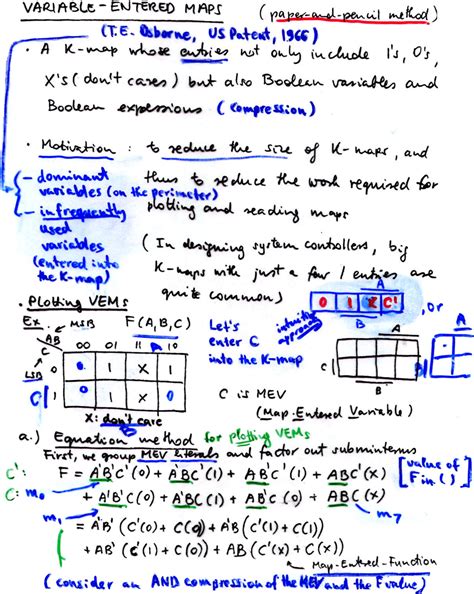 VARIABLE-ENTERED MAPS (paper-and-pencil method)
(T.E. Osborne, US Patent, 1966)
• A K-map whose entries not only include 1's, 0's,
X's (don't cares) but also Boolean variables and
Boolean expessions (compression)
• Motivation: to reduce the size of K-maps, and
thus to reduce the work required for
plotting and reading maps
- dominant
variables (on the perimeter)
- infrequently
used
variables
(entered into
the K-map)
(In designing system controllers, big
K-maps with just a few 1 entries are
quite common)
• Plotting VEMs
Ex. MSB F(A,B,C)
AB
C 00 01 11 10
LSB 0 0 1 X 1
C 1 0 1 X 0
B
X: don't care
Let's
enter C
into the K-map
intuitive
approach
A
0 1 X C'
B
, or
A
A
B
C is MEV
(Map-Entered Variable)
a.) Equation method for plotting VEMs
First, we group MEV literals and factor out subminterms
C': F = A'B'C'(0) + A'BC'(1) + AB'C'(1) + ABC'(X) [value of
F in ( )]
C: m0 + A'B'C(0) + A'BC(1) + AB'C(0) + ABC(X)
m1 m7
= A'B'(C'(0) + C(0)) + A'B(C'(1) + C(1))
+ AB'(C'(1) + C(0)) + AB(C'(X) + C(X))
Map-Entred-Function
(consider an AND compression of the MEV and the F value)